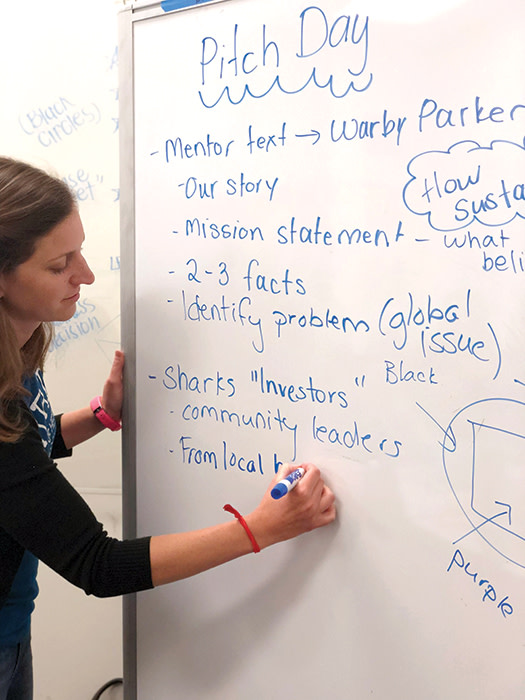 Pitch Day
- Mentor text → Warby Parker
- Our story
- Mission statement - what
- 2-3 facts
- Identify problem (global issue)
How
- Sharks "Investors"
- community leaders
- From local
Black
purple
(Black
circles)